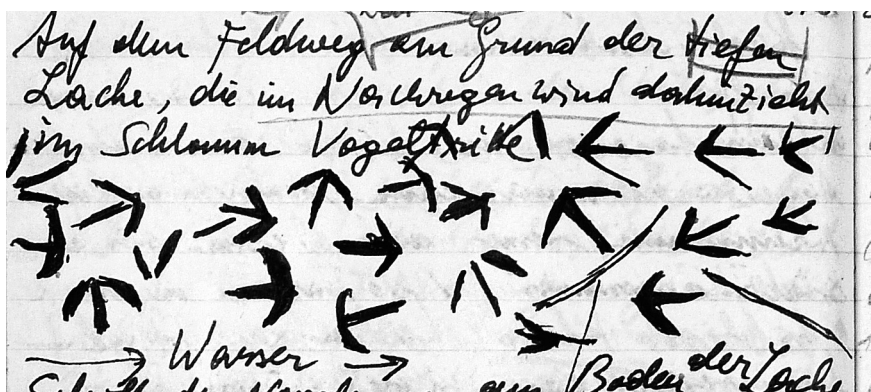 Auf dem Feldweg am Grund der tiefen
Lache, die im Nachregenwind dahinzieht
im Schlamm Vogeltritte
Wasser
am Boden der Lache